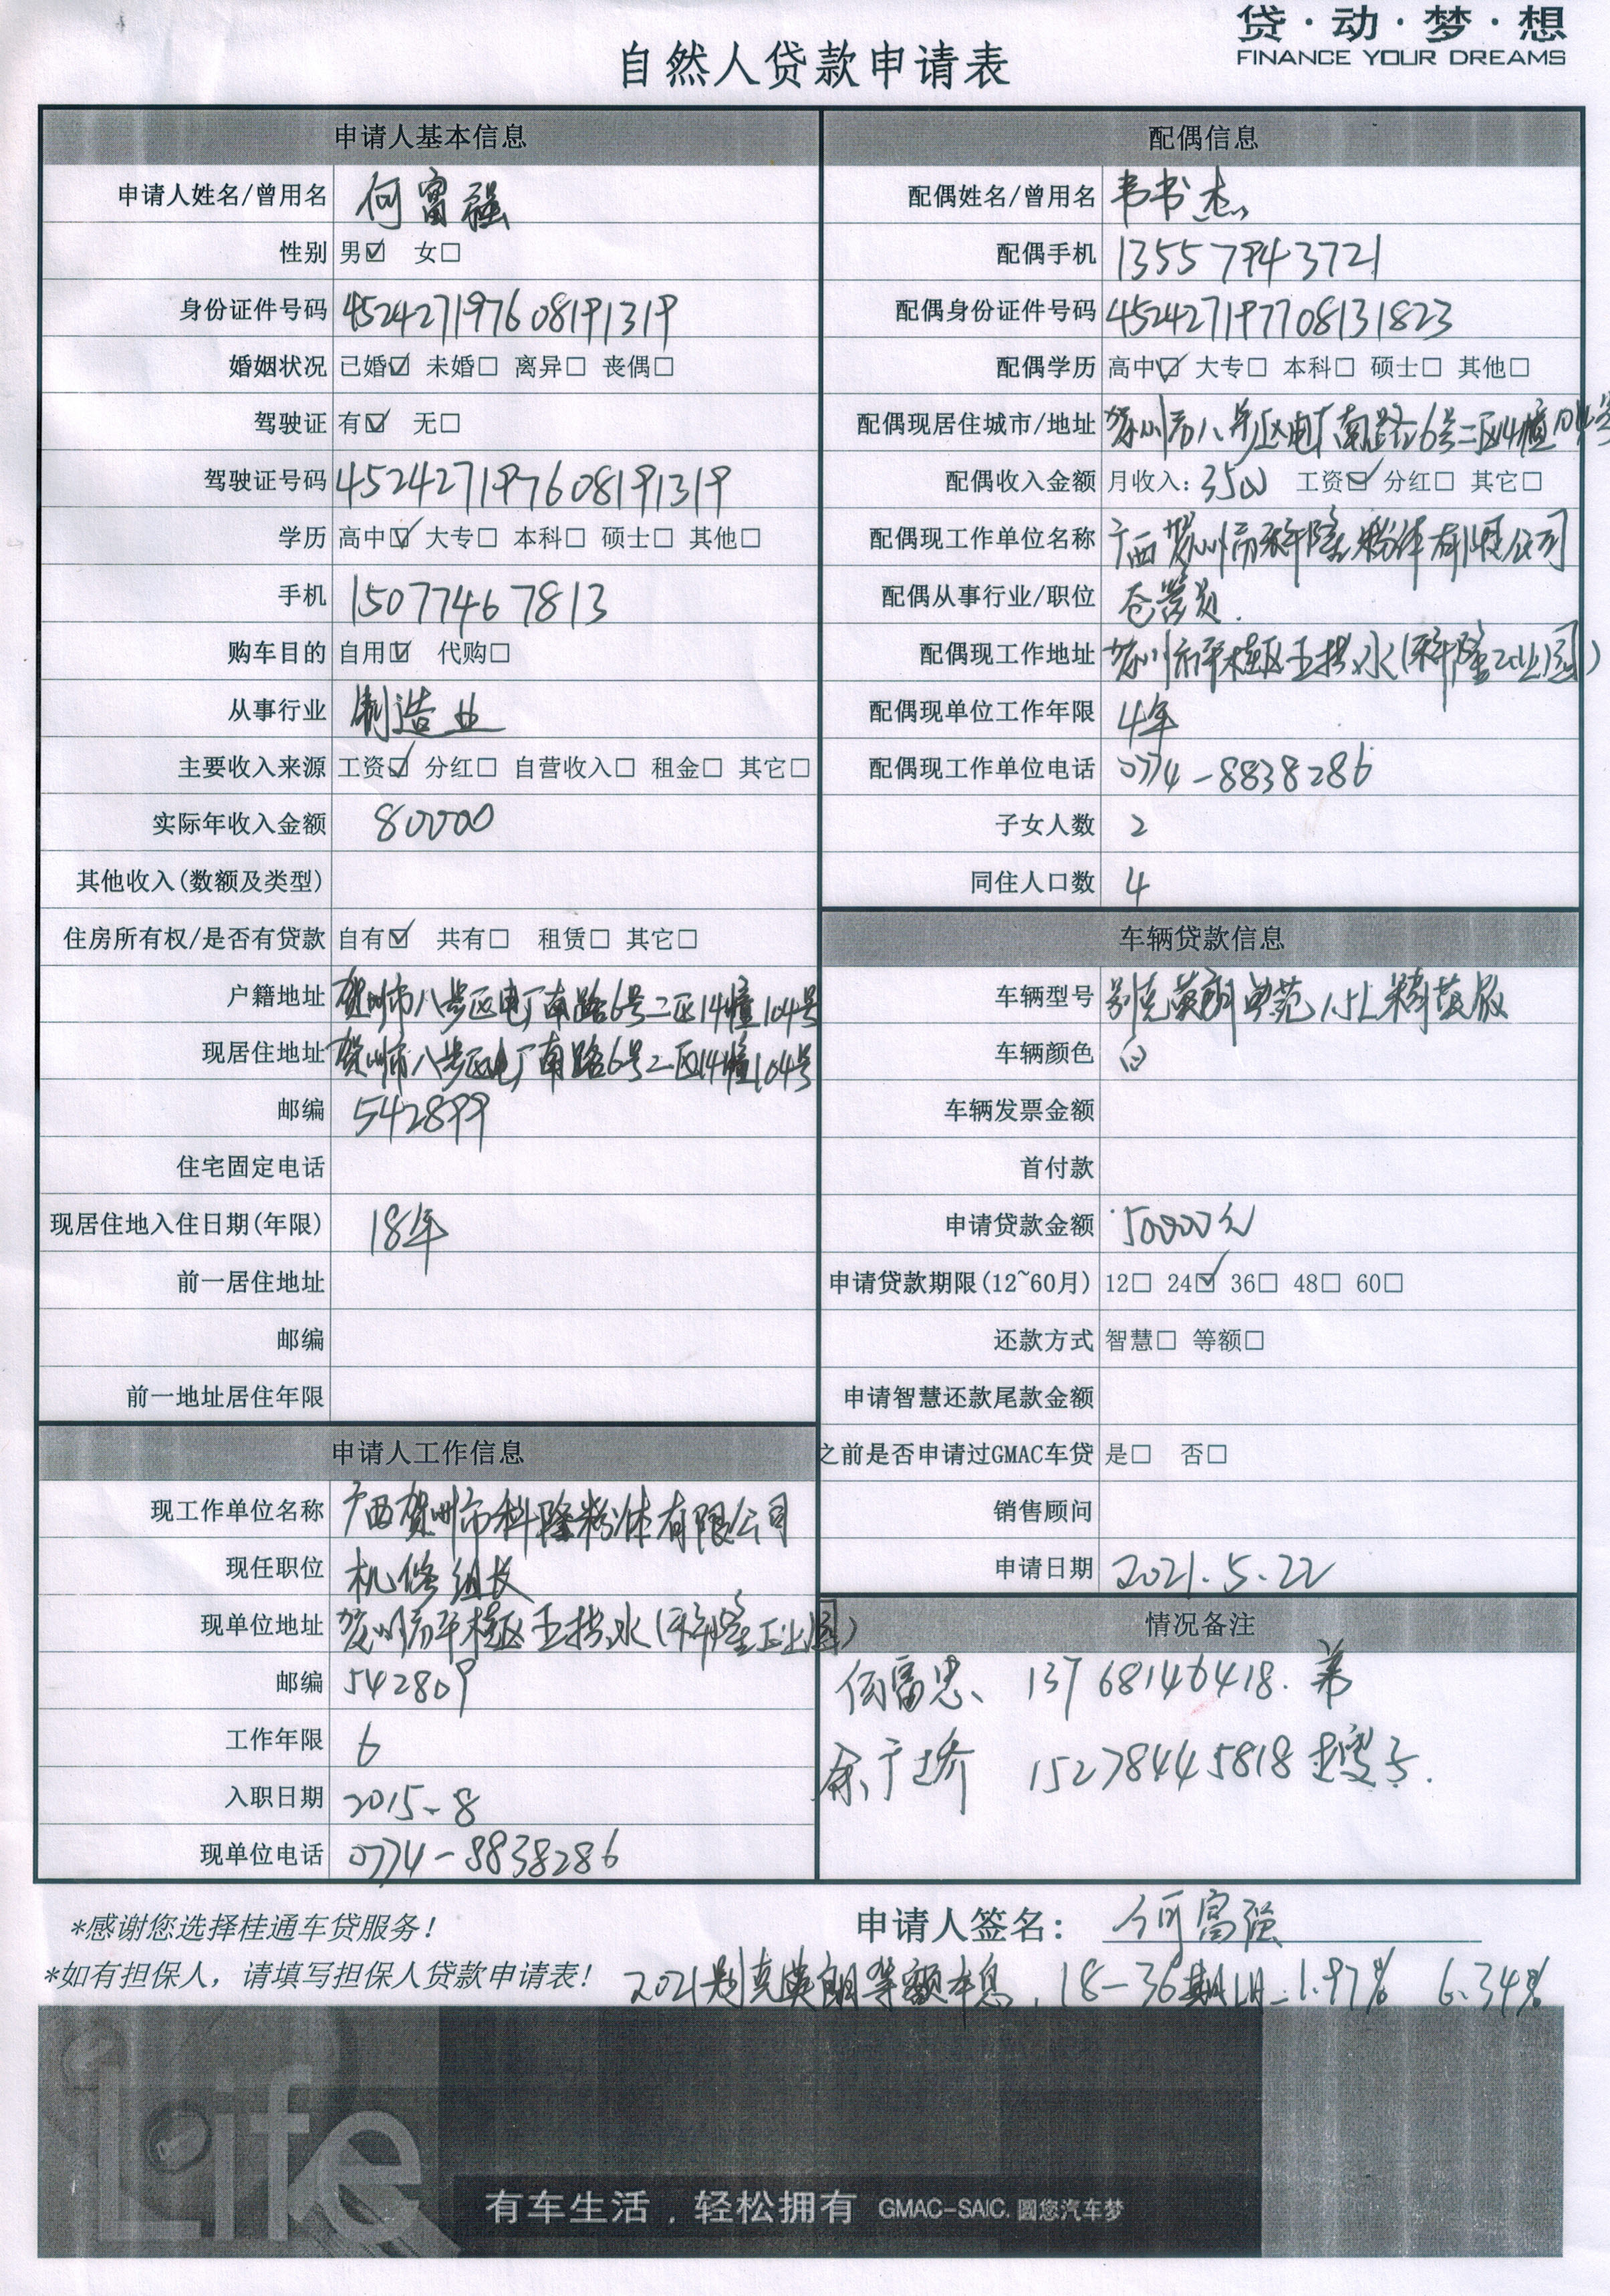 贷·动·梦·想
FINANCE YOUR DREAMS
自然人贷款申请表
申请人基本信息
申请人姓名/曾用名 何富强
性别 男☑ 女□
身份证件号码 452427197608191319
婚姻状况 已婚☑ 未婚□ 离异□ 丧偶□
驾驶证 有☑ 无□
驾驶证号码 452427197608191319
学历 高中☑ 大专□ 本科□ 硕士□ 其他□
手机 15077467813
购车目的 自用☑ 代购□
从事行业 制造业
主要收入来源 工资☑ 分红□ 自营收入□ 租金□ 其它□
实际年收入金额 80000
其他收入(数额及类型)
住房所有权/是否有贷款 自有☑ 共有□ 租赁□ 其它□
户籍地址 贺州市八步区电厂南路6号二区14幢104号
现居住地址 贺州市八步区电厂南路6号二区14幢104号
邮编 542899
住宅固定电话
现居住地入住日期(年限) 18年
前一居住地址
邮编
前一地址居住年限
申请人工作信息
现工作单位名称 广西贺州市科隆粉体有限公司
现任职位 机修组长
现单位地址 贺州市平桂区王拱水(科隆工业园)
邮编 542809
工作年限 6
入职日期 2015-8
现单位电话 0774-8838286
配偶信息
配偶姓名/曾用名 韦书杰
配偶手机 13557943721
配偶身份证件号码 452427197708131823
配偶学历 高中☑ 大专□ 本科□ 硕士□ 其他□
配偶现居住城市/地址 贺州市八步区电厂南路6号二区14幢104号
配偶收入金额 月收入: 3500 工资☑ 分红□ 其它□
配偶现工作单位名称 广西贺州市科隆粉体有限公司
配偶从事行业/职位 仓管员.
配偶现工作地址 贺州市平桂区王拱水(科隆工业园)
配偶现单位工作年限 4年
配偶现工作单位电话 0774-8838286
子女人数 2
同住人口数 4
车辆贷款信息
车辆型号 别克英朗 典范 1.5L 精英版
车辆颜色 白
车辆发票金额
首付款
申请贷款金额 50000元
申请贷款期限(12~60月) 12□ 24☑ 36□ 48□ 60□
还款方式 智慧□ 等额□
申请智慧还款尾款金额
之前是否申请过GMAC车贷 是□ 否□
销售顾问
申请日期 2021.5.22
情况备注
何富忠、 13768146418. 弟
余 15278445818 嫂子.
*感谢您选择桂通车贷服务!
申请人签名: 何富强
*如有担保人，请填写担保人贷款申请表!
2021别克英朗等额本息, 18-36期 1.97% 6.34%
Life
有车生活，轻松拥有 GMAC-SAIC.圆您汽车梦